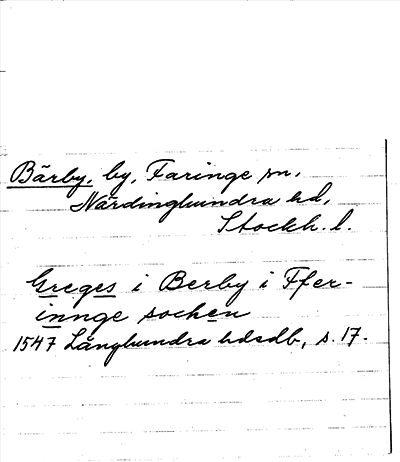 Bärby, by, Faringe sn,
Närdinghundra hd,
Stockh. l.
Greges i Berby i Ffer-
innge socken
1547 Långhundra hdsdb, s. 17.